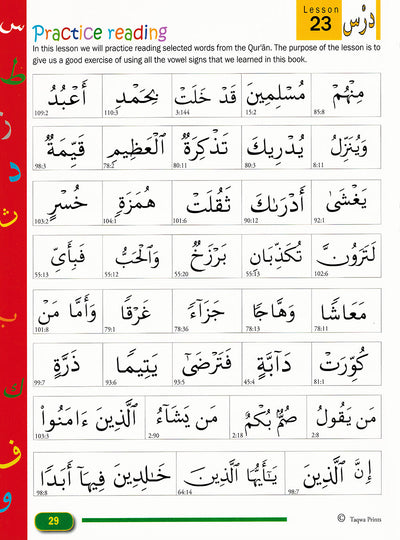 Practice reading
Lesson
23
دَرْس
In this lesson we will practice reading selected words from the Qur'ān. The purpose of the lesson is to
give us a good exercise of using all the vowel signs that we learned in this book.
مِنْهُمْ مُسْلِمِينَ قَدْ خَلَتْ بِحَمْدِ أَعْبُدُ
85:8 15:2 3:144 110:3 109:2
وَيُنَزِّلُ يُدْرِيكَ تَذْكِرَةٌ الْعَظِيمِ قَيِّمَةٌ
8:11 80:3 80:11 78:2 98:3
يَغْشَىٰ أَدْرَىٰكَ ثَقُلَتْ هُمَزَةٍ خُسْرٍ
92:1 90:12 101:6 104:1 103:2
لَتَرَوُنَّ تُكَذِّبَانِ بَرْزَخٌ وَالْحَبُّ فَبِأَيِّ
102:6 55:13 55:20 55:12 55:13
مَعَاشًا وَهَّاجًا جَزَآءً غَرْقًا وَأَمَّا مَنْ
78:11 78:13 78:36 79:1 101:8
كُوِّرَتْ دَآبَّةٍ فَتَرْضَىٰٓ يَتِيمًا ذَرَّةٍ
81:1 45:4 93:5 93:6 99:7
مَن يَقُولُ صُمٌّ بُكْمٌ مَن يَشَآءُ الَّذِينَ ءَامَنُوا
2:8 2:18 2:90 103:3
إِنَّ الَّذِينَ يَٰٓأَيُّهَا الَّذِينَ خَٰلِدِينَ فِيهَآ أَبَدًا
98:7 64:14 98:8
س
ظ
ز
د
ث
ب
ك
ف
و
29
© Taqwa Prints